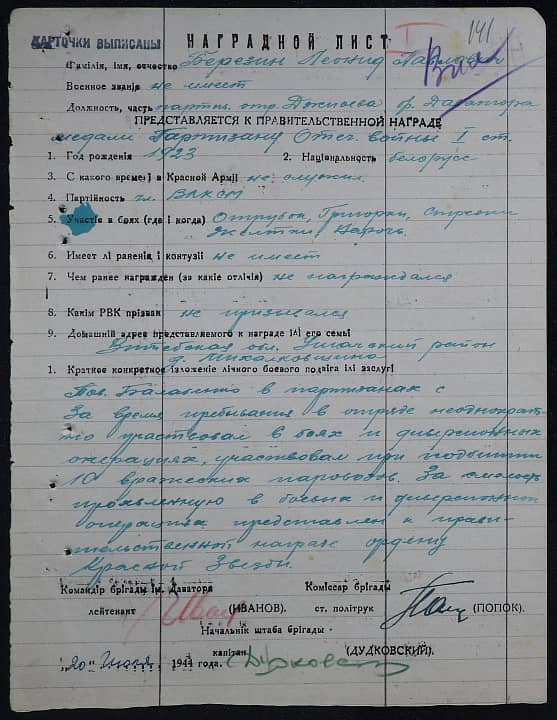 КАРТОЧКИ ВЫПИСАНЫ
НАГРАДНОЙ ЛИСТ
I
141
Фамілія, імя, отчество Березин Леонид Павлович
Военное званіе не имеет
Должность, часть партиз. отр. Доваторa
ПРЕДСТАВЛЯЕТСЯ К ПРАВИТЕЛЬСТВЕННОЙ НАГРАДЕ
медали Партизану Отеч. войны I ст.
1. Год рожденія 1923 2. Національность белорусс
3. С какого времені в Красной Армії не служил
4. Партійность чл. ВЛКСМ
5. Участіе в боях (где і когда) Отрубок, Григорки,
Желтки, Нарочь.
6. Имеет лі раненія і контузії не имеет
7. Чем ранее награжден (за какіе отлічія) не награждался
8. Какім РВК прізван не призывался
9. Домашній адрес представляемого к награде ілі его семьі
Витебская обл. Ушачский район
д. Михалковщина
1. Краткое конкретное ізложение лічного боевого подвіга ілі заслугі
Тов. в партизанах с
За время пребывания в отряде неоднократ-
но участвовал в боях и диверсионных
операциях, участвовал при подбитии
10 вражеских паровозов. За смелость
проявленную в боевых и диверсионной
операциях представлен к прави-
тельственной награде ордену
Красной Звезды.
Командір брігады ім. Даватора
лейтенант (ИВАНОВ).
Коміссар брігады
ст. політрук (ПОПОК).
Начальнік штаба брігады
капітан (ДУДКОВСКИЙ).
"20" Июня 1944 года.